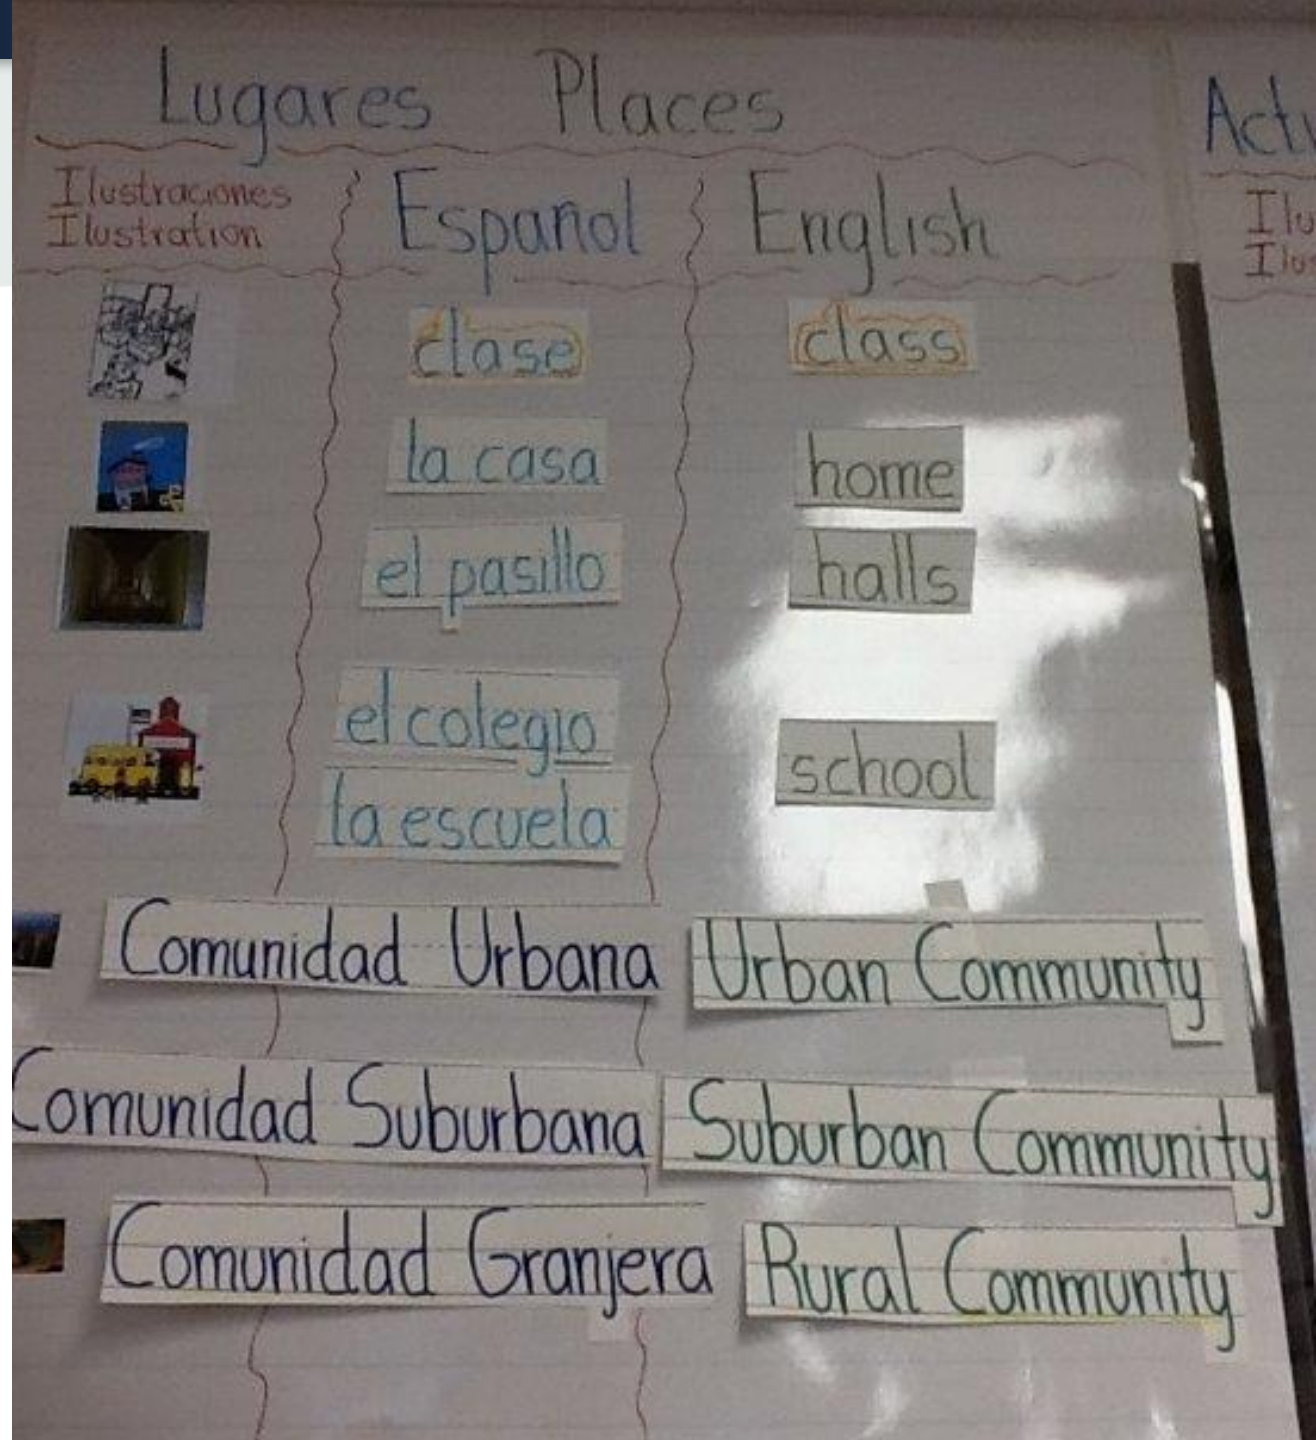 Lugares Places
Actu
Ilustraciones
Ilustration
Español
English
Ilu
Ilus
clase
class
la casa
home
el pasillo
halls
el colegio
la escuela
school
Comunidad Urbana
Urban Community
Comunidad Suburbana
Suburban Community
Comunidad Granjera
Rural Community